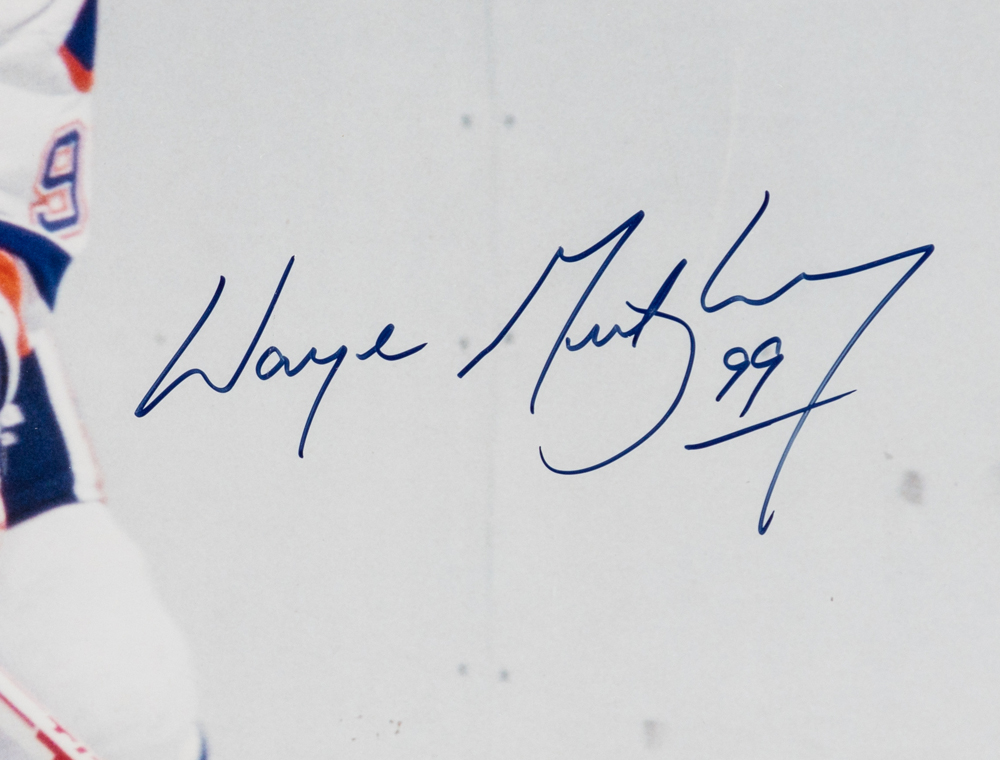 Wayne Gretzky
99
9